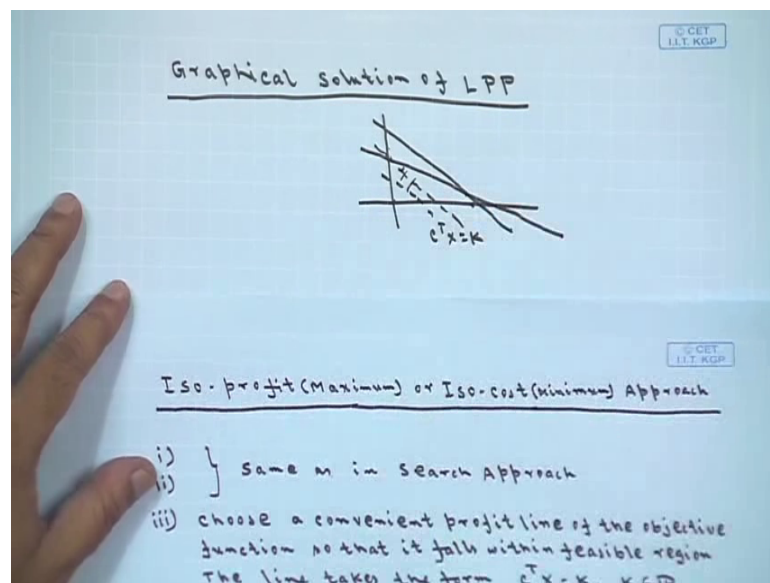 © CET
I.I.T. KGP
Graphical solution of LPP
cᵀx=K
© CET
I.I.T. KGP
Iso-profit (Maximum) or Iso-cost (Minimum) Approach
i)
ii) } same as in search Approach
iii) choose a convenient profit line of the objective
function so that it falls within feasible region
The line takes the form cᵀx=K